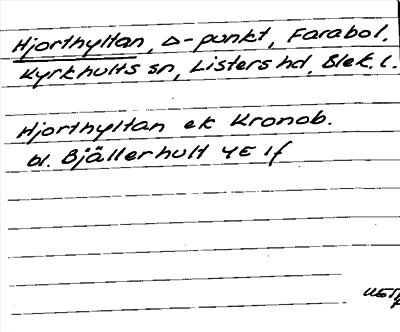 Hjorthyltan, Δ-punkt, Farabol,
Kyrkhults sn, Listers hd, Blek. l.
Hjorthyltan ek Kronob.
bl. Bjällerhult 4E 1f